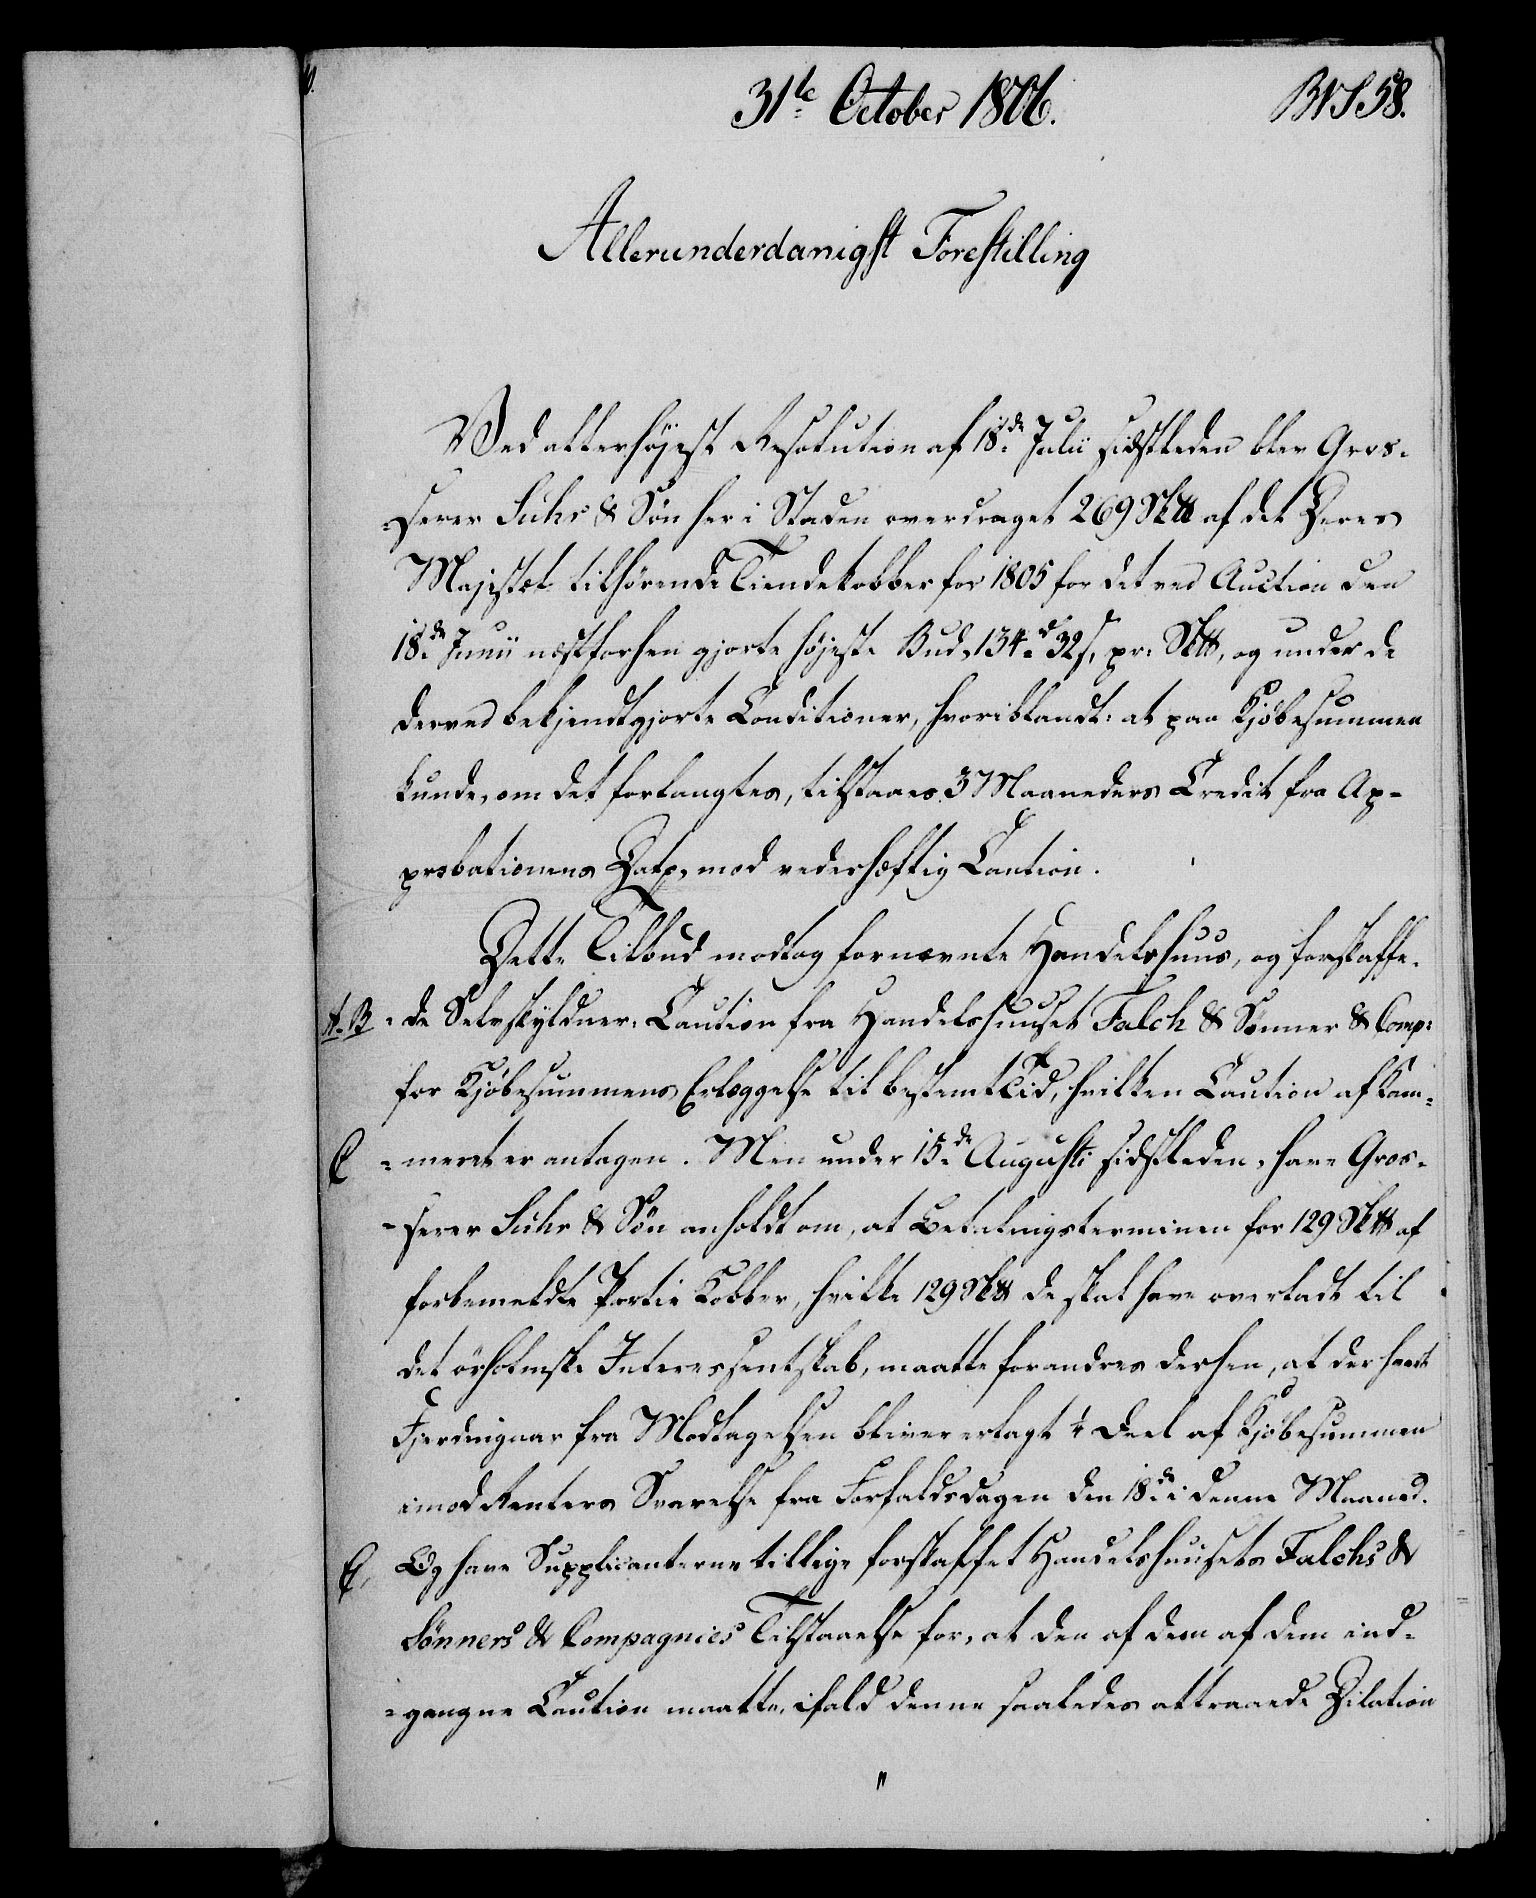 31te October 1806.
BVS 58.
Allerunderdanigst Forestilling
Ved allerhøjest Resolution af 18de Julii sidstleden blev Gros-
serer Suhr & Søn her i Staden overdraget 269 Sk℔ af det Deres
Majestæt tilhørende Tiendekobber for 1805 for det ved Auction den
18de Junii næstforhen gjorte højeste Bud, 134 rd 32 s, pr: Sk℔, og under de
derved bekjendtgjorte Conditioner, hvoriblandt: at paa Kjøbesummen
kunde, om det forlangtes, tilstaaes 3 Maaneders Credit fra Ap-
probationens Dato, mod vederhæftig Caution.
Dette Tilbud modtog fornævnte Handelshuus, og forskaffe-
A. B
-de Selvskyldner-Caution fra Handelshuuset Falch & Sønner & Comp:
for Kjøbesummens Erlæggelse til bestemt Tid, hvilken Caution af Kam-
C
-meret er antagen. Men under 15de Augusti sidstleden, have Gros-
-serer Suhr & Søn anholdt om, at Betalingsterminen for 129 Sk℔ af
forbemeldte Partie Kobber, hvilke 129 Sk℔ de skal have overladt til
det örholmske Interessentskab, maatte forandres derhen, at der hvert
Fjerdingaar fra Modtagelsen bliver erlagt ¼ Deel af Kjøbesummen
imod Renters Svarelse fra Forfaldsdagen den 18de i denne Maaned.
E,
Og have Supplicanterne tillige forskaffet Handelshuusets Falchs &
Sönners & Compagnies Tilstaaelse for, at den af dem af dem ind-
-gangne Caution maatte, ifald denne saaledes attraaede Dilation
"